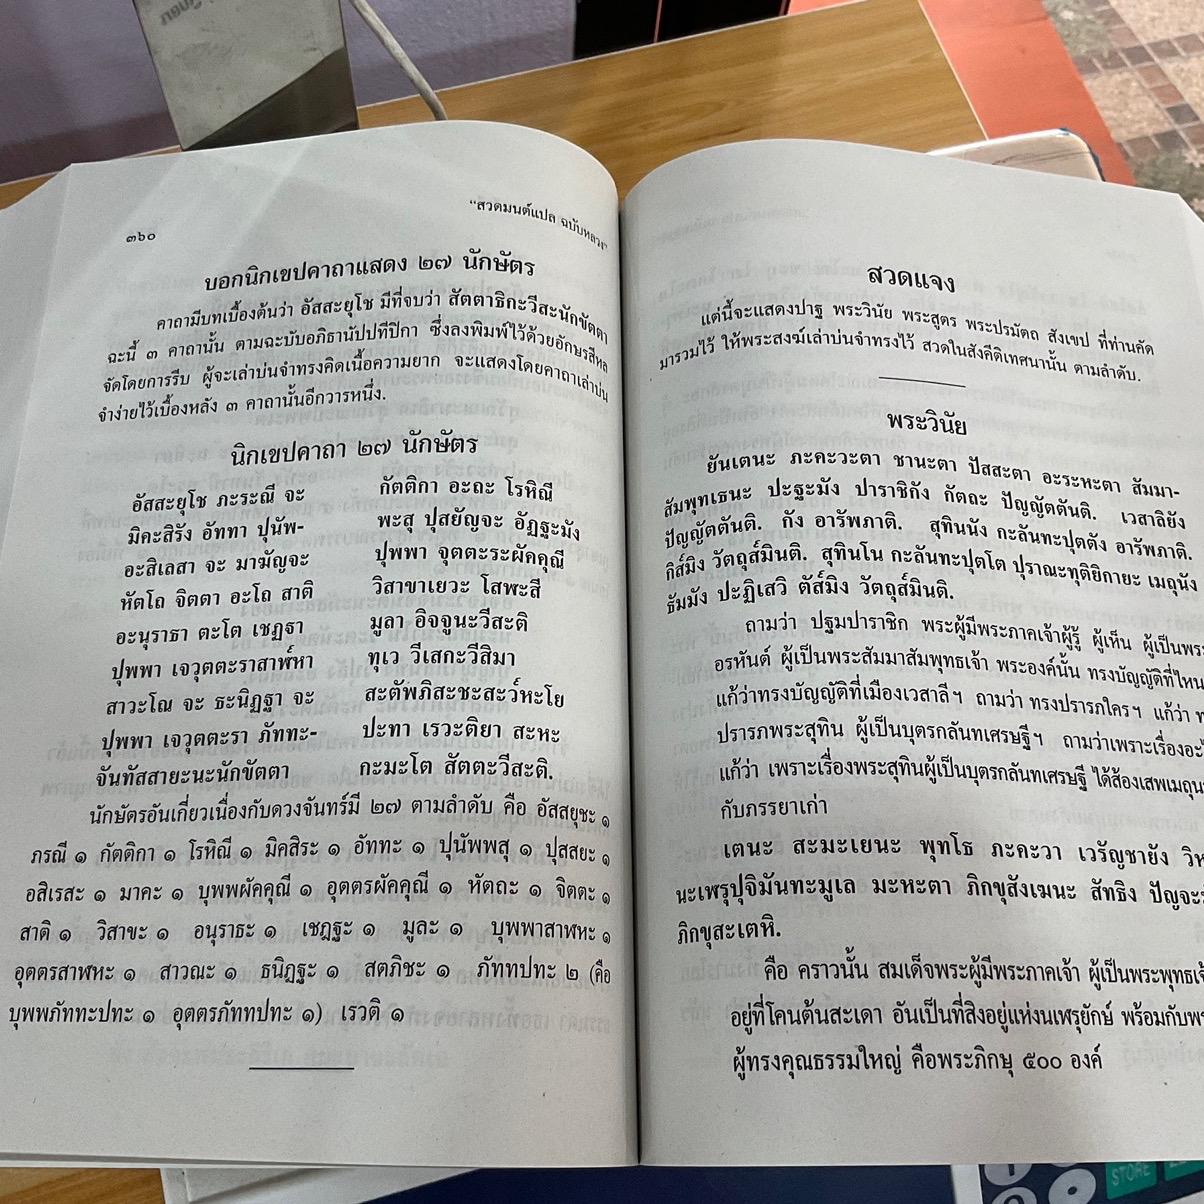 ๓๖๐
"สวดมนต์แปล ฉบับหลวง"
บอกนิกเขปคาถาแสดง ๒๗ นักษัตร
คาถามีบทเบื้องต้นว่า อัสสะยุโช มีที่จบว่า สัตตาธิกะวีสะนักขัตตา
ฉะนี้ ๓ คาถานั้น ตามฉะบับอภิธานัปปทีปิกา ซึ่งลงพิมพ์ไว้ด้วยอักษรสีหล
จัดโดยการรีบ ผู้จะเล่าบ่นจำทรงคิดเนื้อความยาก จะแสดงโดยคาถาเล่าบ่น
จำง่ายไว้เบื้องหลัง ๓ คาถานั้นอีกวารหนึ่ง.
นิกเขปคาถา ๒๗ นักษัตร
อัสสะยุโช ภะระณี จะ กัตติกา อะถะ โรหิณี
มิคะสิรัง อัททา ปุนัพ- พะสุ ปุสยัญจะ อัฏฐะมัง
อะสิเลสา จะ มาฆัญจะ ปุพพา จุตตะระผัคคุณี
หัตโถ จิตตา อะโถ สาติ วิสาขาเยวะ โสพะสี
อะนุราธา ตะโต เชฏฐา มูลา อิจจูนะวีสะติ
ปุพพา เจวุตตะราสาฬ์หา ทุเว วีเสกะวีสิมา
สาวะโณ จะ ธะนิฏฐา จะ สะตัพภิสะชะสะว๎หะโย
ปุพพา เจวุตตะรา ภัททะ- ปะทา เรวะติยา สะหะ
จันทัสสายะนะนักขัตตา กะมะโต สัตตะวีสะติ.
นักษัตรอันเกี่ยวเนื่องกับดวงจันทร์มี ๒๗ ตามลำดับ คือ อัสสยุชะ ๑
ภรณี ๑ กัตติกา ๑ โรหิณี ๑ มิคสิระ ๑ อัททะ ๑ ปุนัพพสุ ๑ ปุสสยะ ๑
อสิเรสะ ๑ มาคะ ๑ บุพพผัคคุณี ๑ อุตตรผัคคุณี ๑ หัตถะ ๑ จิตตะ ๑
สาติ ๑ วิสาขะ ๑ อนุราธะ ๑ เชฏฐะ ๑ มูละ ๑ บุพพาสาฬหะ ๑
อุตตรสาฬหะ ๑ สาวณะ ๑ ธนิฏฐะ ๑ สตภิชะ ๑ ภัททปทะ ๒ (คือ
บุพพภัททะปทะ ๑ อุตตรภัททปทะ ๑) เรวดิ ๑
สวดแจง
แต่นี้จะแสดงปาฐ พระวินัย พระสูตร พระปรมัตถ สังเขป ที่ท่านคัด
มารวมไว้ ให้พระสงฆ์เล่าบ่นจำทรงไว้ สวดในสังคีติเทศนานั้น ตามลำดับ.
พระวินัย
ยันเตนะ ภะคะวะตา ชานะตา ปัสสะตา อะระหะตา สัมมา-
สัมพุทเธนะ ปะฐะมัง ปาราชิกัง กัตถะ ปัญญัตตันติ. เวสาลิยัง
ปัญญัตตันติ. กัง อารัพภาติ. สุทินนัง กะลันทะปุตตัง อารัพภาติ.
กิส์มิง วัตถุส์มินติ. สุทินโน กะลันทะปุตโต ปุราณะทุติยิกายะ เมถุนัง
ธัมมัง ปะฏิเสวิ ตัส์มิง วัตถุส์มินติ.
ถามว่า ปฐมปาราชิก พระผู้มีพระภาคเจ้าผู้รู้ ผู้เห็น ผู้เป็นพระ
อรหันต์ ผู้เป็นพระสัมมาสัมพุทธเจ้า พระองค์นั้น ทรงบัญญัติที่ไหน
แก้ว่าทรงบัญญัติที่เมืองเวสาลีฯ ถามว่า ทรงปรารภใครฯ แก้ว่า
ปรารภพระสุทิน ผู้เป็นบุตรกลันทเศรษฐีฯ ถามว่าเพราะเรื่อง
แก้ว่า เพราะเรื่องพระสุทินผู้เป็นบุตรกลันทเศรษฐี ได้ส้องเสพเมถุน
กับภรรยาเก่า
เตนะ สะมะเยนะ พุทโธ ภะคะวา เวรัญชายัง
นะเพรุปุจิมันทะมูเล มะหะตา ภิกขุสังเฆนะ สัทธิง ปัญจะ
ภิกขุสะเตหิ.
คือ คราวนั้น สมเด็จพระผู้มีพระภาคเจ้า ผู้เป็นพระพุทธ
อยู่ที่โคนต้นสะเดา อันเป็นที่สิงอยู่แห่งนเฬรุยักษ์ พร้อมกับ
ผู้ทรงคุณธรรมใหญ่ คือพระภิกษุ ๕๐๐ องค์
STORE